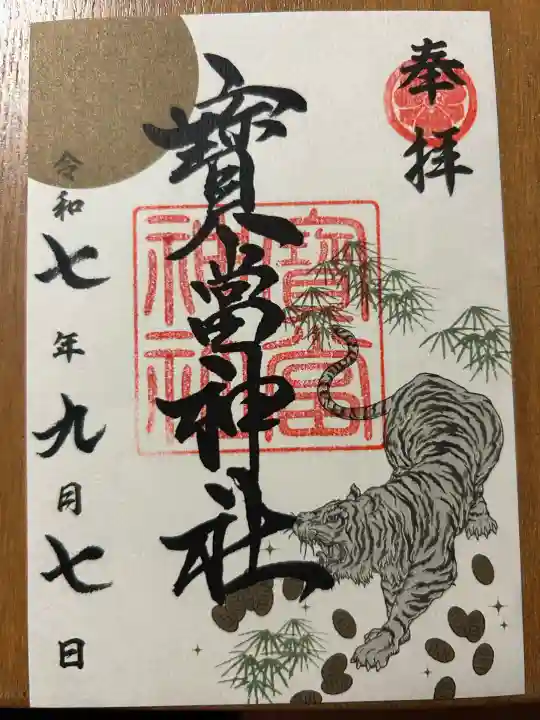 奉拝
寳當神社
寳當
神社
令和七年九月七日